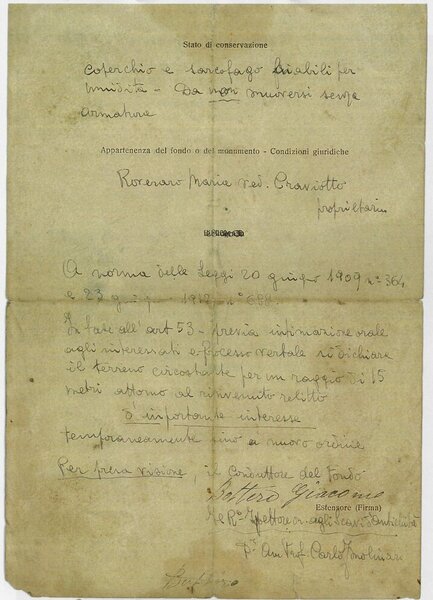 Stato di conservazione
coperchio e sarcofago labili per
umidità - Da non muoversi senza
armature
Appartenenza del fondo o del monumento - Condizioni giuridiche
Roveraro Maria ved. Craviotto
proprietaria
A norma delle Leggi 20 giugno 1909 n° 364
e 23 giugno 1912 n° 688
In base all'art 53 - previa intimazione orale
agli interessati e processo verbale si dichiara
il terreno circostante per un raggio di 15
metri attorno al rinvenuto relitto
d'importante interesse
temporaneamente fino a nuovo ordine
Per presa visione, il Conduttore del Fondo
Bottero Giacomo
Estensore (Firma)
Il R° Ispettore on. agli Scavi d'Antichità
Prof. Carlo